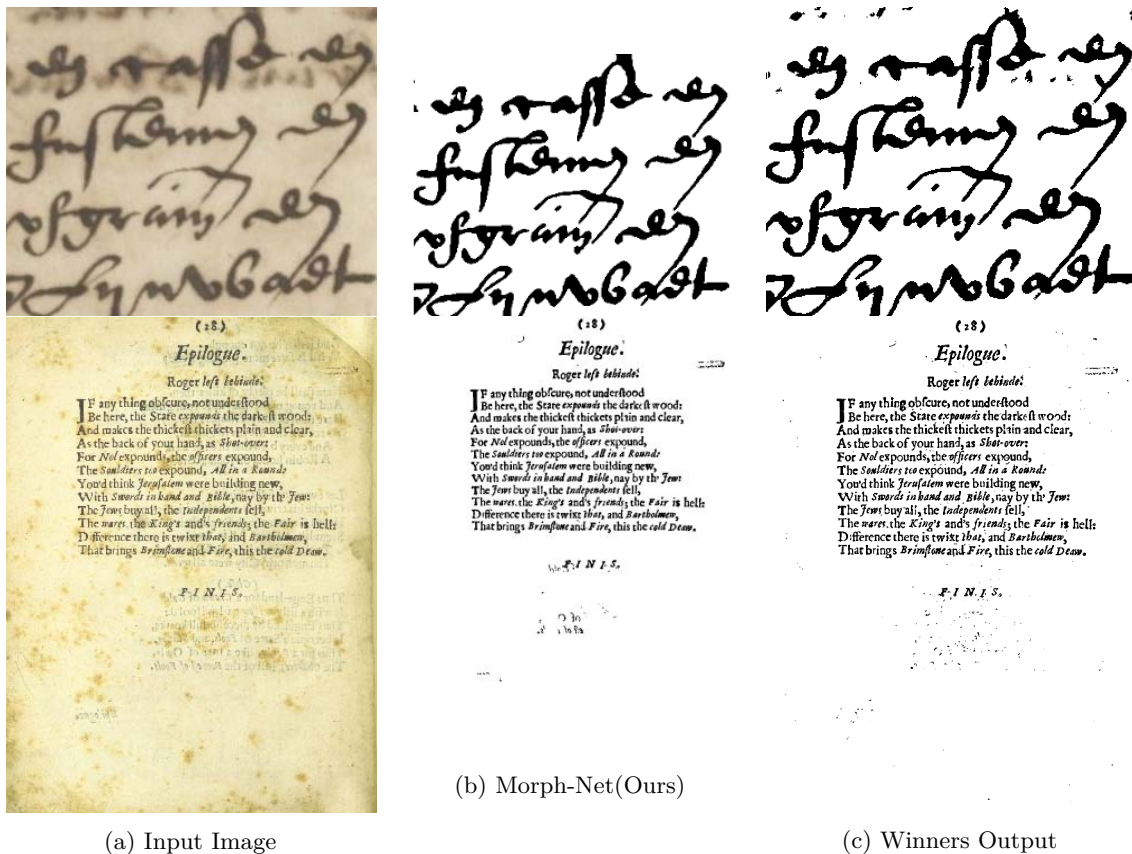 (28)
Epilogue.
Roger left behinde.
IF any thing obſcure, not underſtood
Be here, the State expounds the darkeſt wood:
And makes the thickeſt thickets plain and clear,
As the back of your hand, as Shot-over:
For Nol expounds, the officers expound,
The Souldiers too expound, All in a Round:
You'd think Jeruſalem were building new,
With Swords in hand and Bible, nay by th' Jew:
The Jews buy all, the Independents ſell,
The wares. the King's and's friends; the Fair is hell:
Difference there is twixt that, and Bartholmew,
That brings Brimſtone and Fire, this the cold Deaw.
FINIS.
(a) Input Image
(28)
Epilogue.
Roger left behinde.
IF any thing obſcure, not underſtood
Be here, the State expounds the darkeſt wood:
And makes the thickeſt thickets plain and clear,
As the back of your hand, as Shot-over:
For Nol expounds, the officers expound,
The Souldiers too expound, All in a Round:
You'd think Jeruſalem were building new,
With Swords in hand and Bible, nay by th' Jew:
The Jews buy all, the Independents ſell,
The wares. the King's and's friends; the Fair is hell:
Difference there is twixt that, and Bartholmew,
That brings Brimſtone and Fire, this the cold Deaw.
FINIS.
(b) Morph-Net(Ours)
(28)
Epilogue.
Roger left behinde.
IF any thing obſcure, not underſtood
Be here, the State expounds the darkeſt wood:
And makes the thickeſt thickets plain and clear,
As the back of your hand, as Shot-over:
For Nol expounds, the officers expound,
The Souldiers too expound, All in a Round:
You'd think Jeruſalem were building new,
With Swords in hand and Bible, nay by th' Jew:
The Jews buy all, the Independents ſell,
The wares. the King's and's friends; the Fair is hell:
Difference there is twixt that, and Bartholmew,
That brings Brimſtone and Fire, this the cold Deaw.
FINIS.
(c) Winners Output